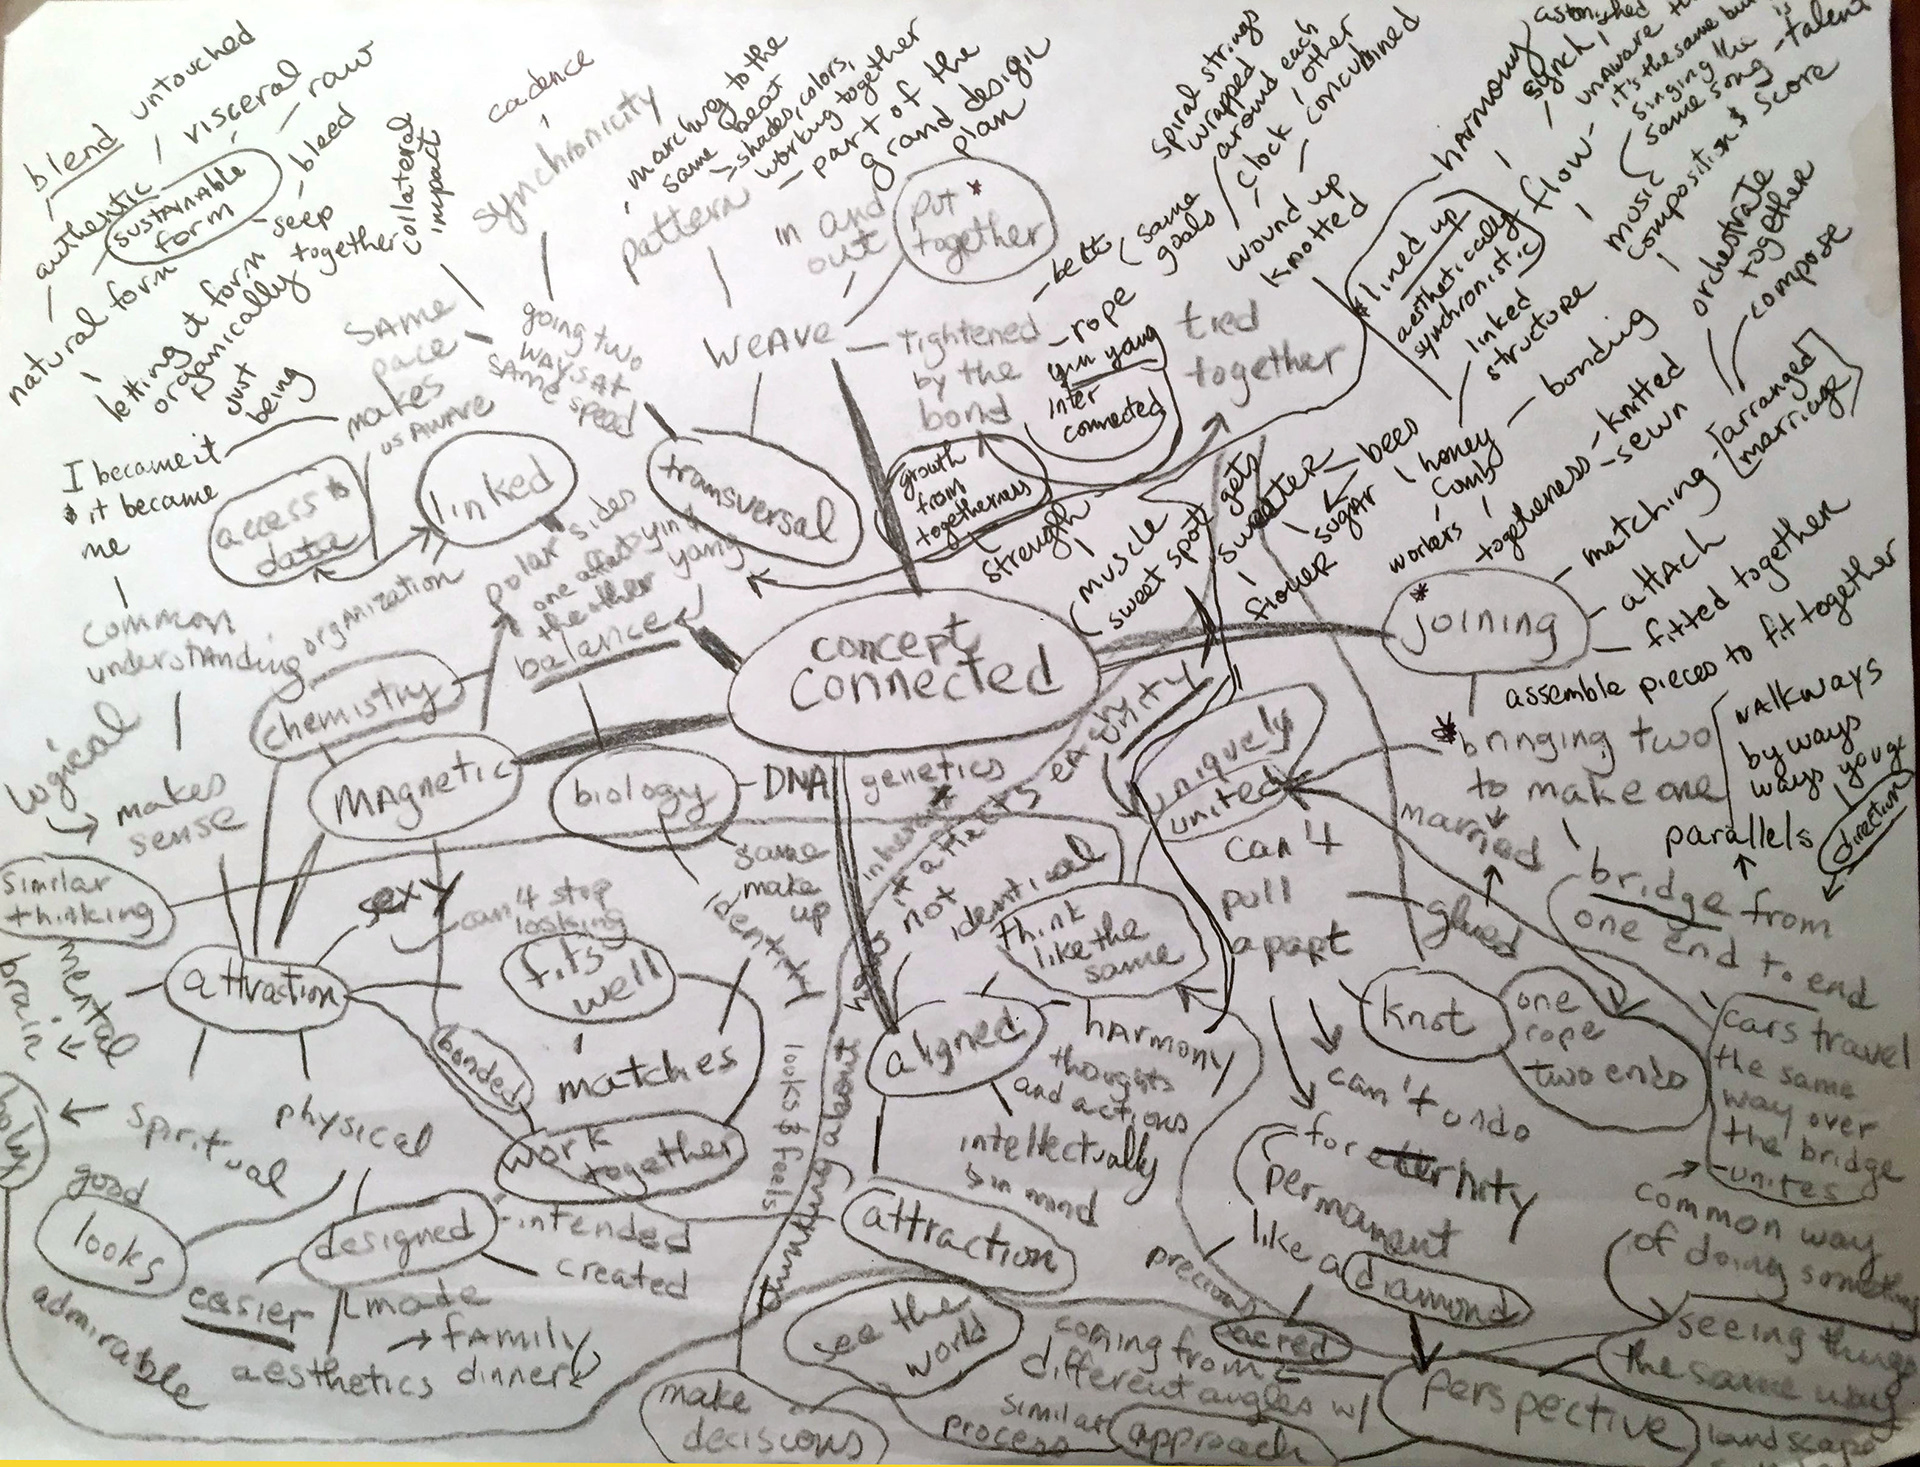 blend
untouched
visceral
raw
authentic
sustainable
form
bleed
seep
together
natural form
letting it form
organically
just
being
collateral
impact
cadence
synchronicity
marching to the
same beat
shades, colors,
working together
- part of the
grand design
plan
pattern
in and
out
put *
together
WEAVE
SAME
pace
makes
us AWARE
going two
WAYS AT
SAME speed
- tightened
by the
bond
- belts
same
goals
- rope
yin yang
inter
connected
tied
together
spiral strings
wrapped
around each
other
clock
concubined
wound up
knotted
harmony
astonished
synch!
unaware
it's the same but
singing the
same song
is
- talent
flow -
music
composition & score
orchestrate
together
compose
* lined up
aesthetically
synchronistic
linked
structure
bonding
togetheness
- knitted
- sewn
[arranged
marriage]
matching
attach
fitted together
assemble pieces to fit together
I became it
& it became
me
access *
data
linked
transversal
growth
from
togetherness
strength
muscle
sweet spot
gets
sweeter
- bees
sugar
honey
comb
workers
flower
* joining
common
understanding
organization
polar sides
one affecting
the other
yin &
yang
balance
chemistry
concept
connected
unity
each
uniquely
united
* bringing two
to make one
WALKWAYS
byways
ways you go
direction
parallels
logical
makes
sense
MAgnetic
biology
- DNA
genetics
inherent
it affects
not
identical
same
make
up
identity
can't
pull
apart
married
glued
bridge from
one end to end
similar
thinking
mental
brain
attraction
sexy
can't stop
looking
fits
well
matches
bonded
think
like the
same
aligned
hARMONY
thoughts
and actions
intellectually
& in mind
knot
one
rope
two ends
cars travel
the same
way over
the bridge
- unites
can't undo
for eternity
permanent
like a diamond
common way
of doing something
holy
spiritual
physical
work
together
looks & feels
good
looks
admirable
designed
- intended
created
easier
made
→ fAMILY
dinner
aesthetics
attraction
precious
sacred
see the
world
make
decisions
coming from
different angles w/
similar
process
approach
perspective
seeing things
the same way
landscape